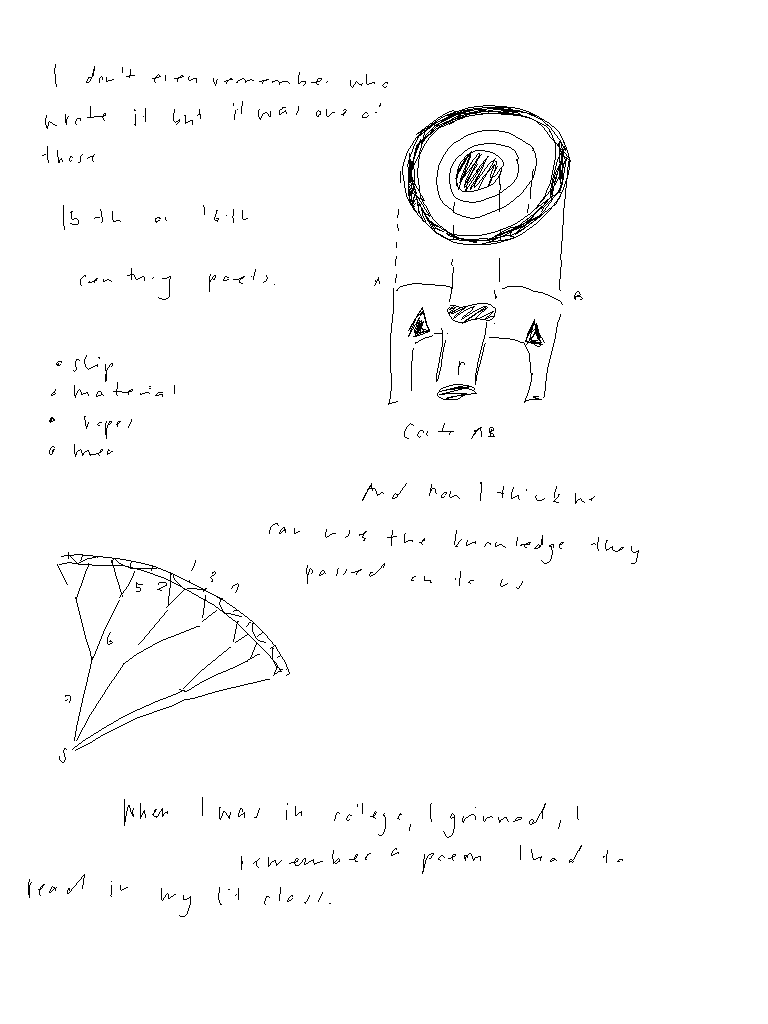 I don't even remember who
wrote it but it was one of
those
15th or 16th
century poets.
A
B
• slip
• material
• ropes
r
Coate AB
And now I think we
can use the knowledge they
passed on to us
1
3
5 2
6
7
S
When I was in college, I grinned, I
remember a poem I had to
read in my lit class.